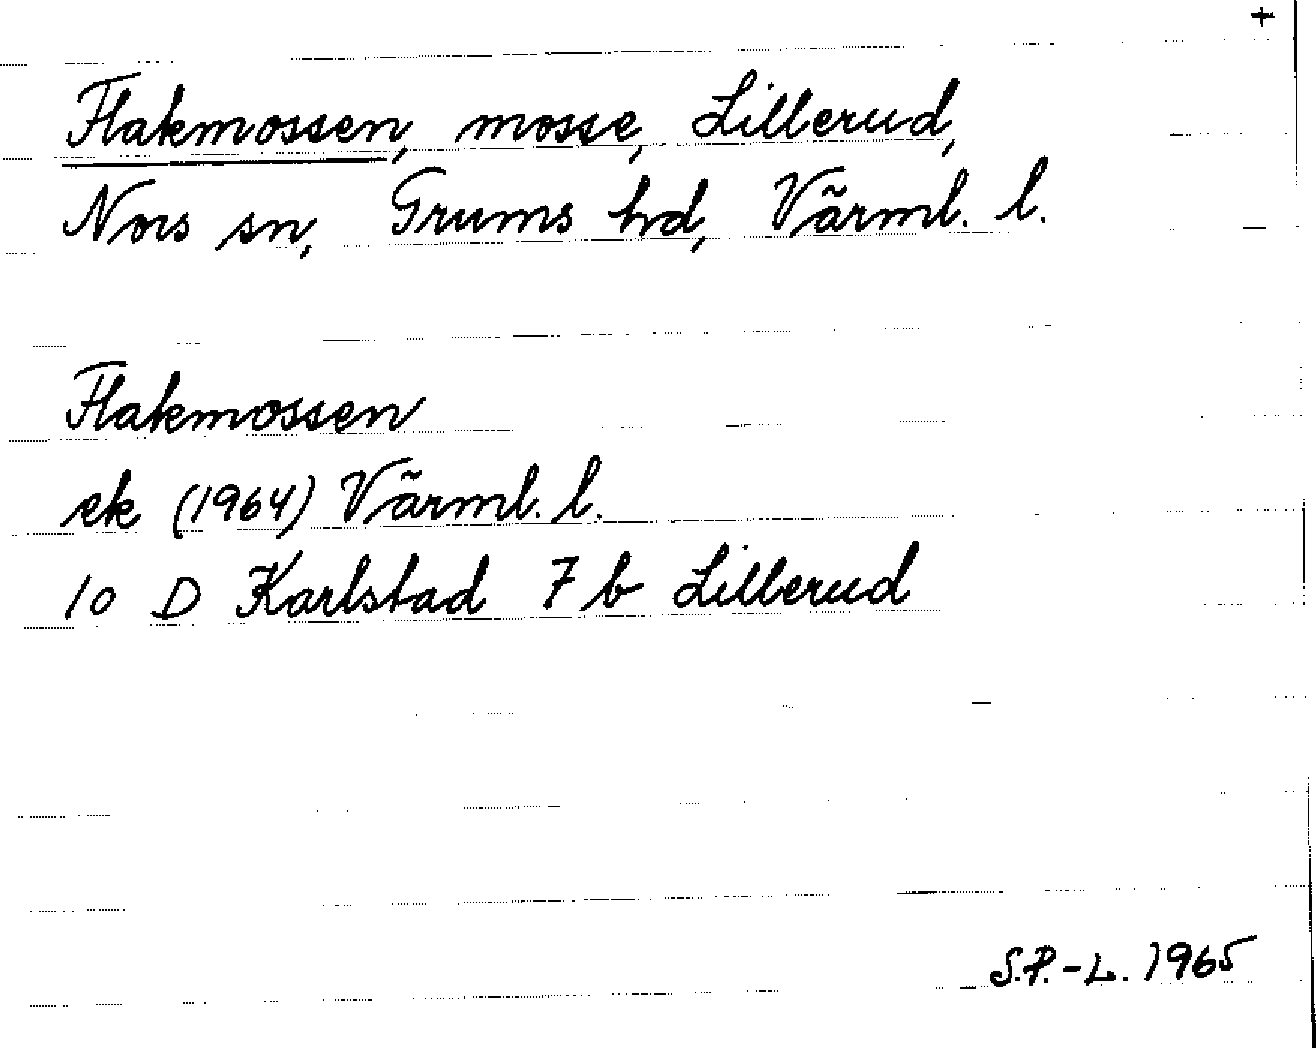 +
Flakmossen, mosse, Lillerud,
Nors sn, Grums hd, Värml. l.
Flakmossen
ek (1964) Värml. l.
10 D Karlstad 7 b Lillerud
S.P.-L. 1965